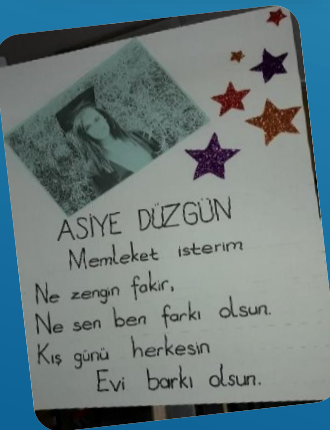 ASİYE DÜZGÜN
Memleket isterim
Ne zengin fakir,
Ne sen ben farkı olsun.
Kış günü herkesin
Evi barkı olsun.